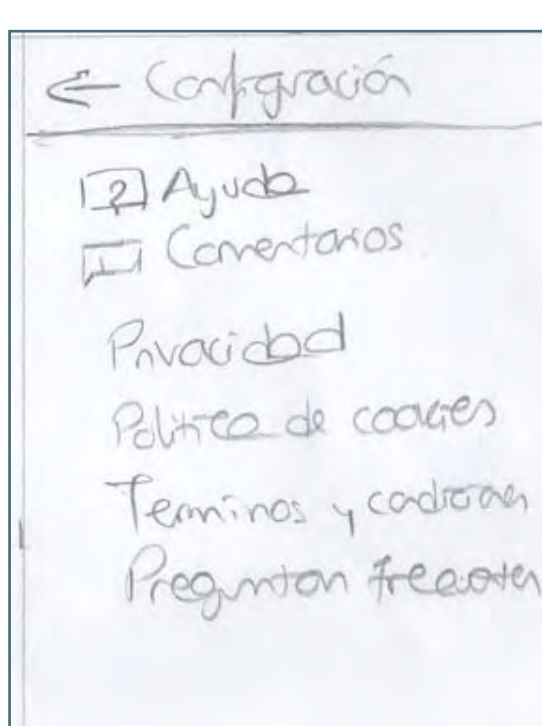 ← Configración
? Ayuda
Comentarios
Privacidad
Politica de cookies
Terminos y condiciones
Preguntas frecuentes